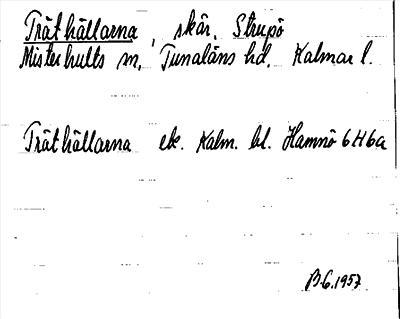 Träthällarna, skär, Strupö
Misterhults sn, Tunaläns hd. Kalmar l.
Träthällarna ek. Kalm. bl. Hamnö 6H6a
B.G. 1957